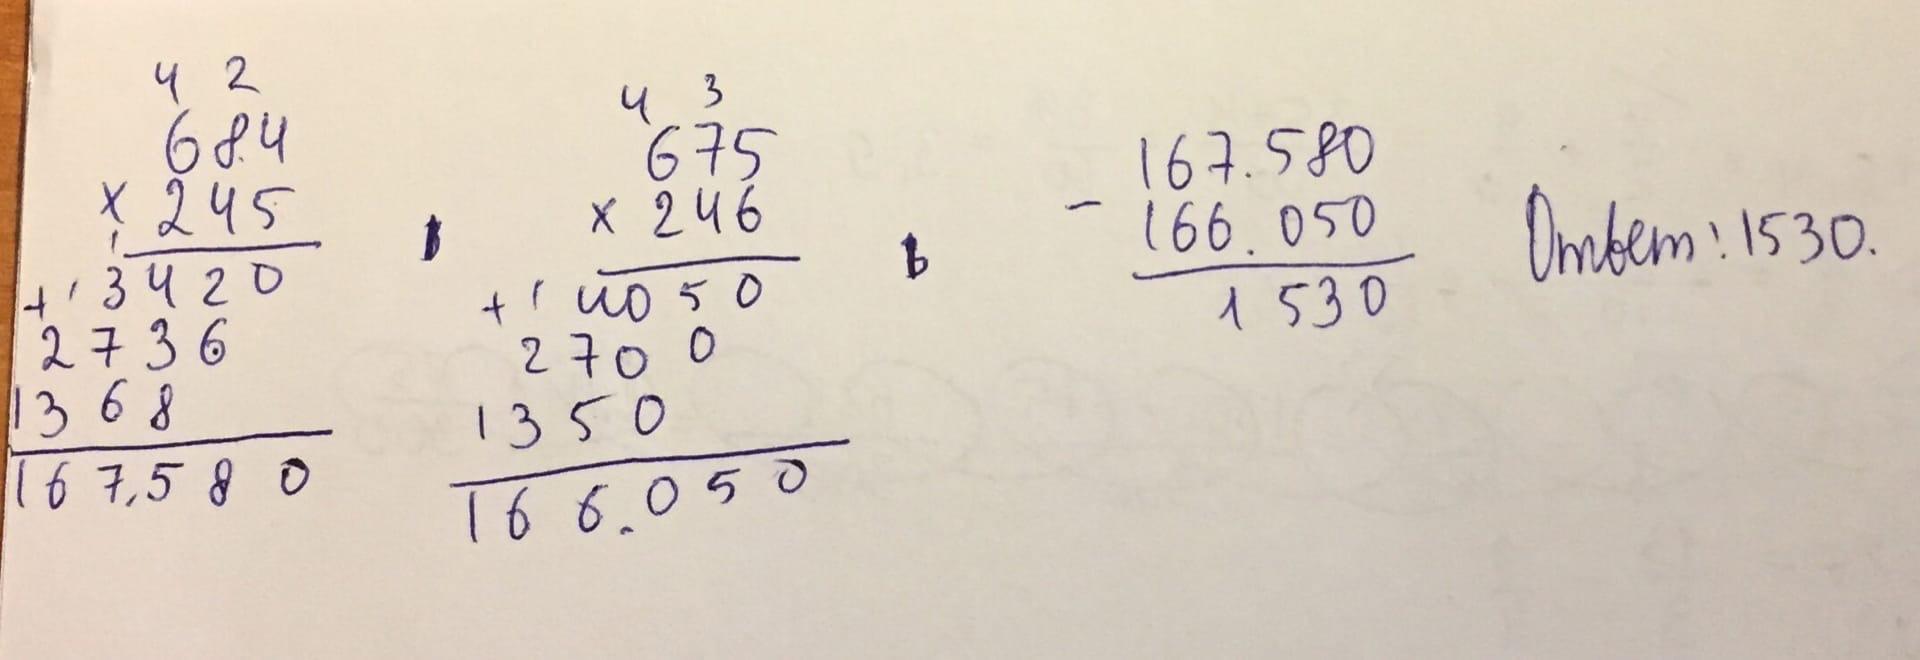 4 2
684
× 245
1
+ 1 3420
2736
1368
167.580
4 3
675
× 246
+ 1 4050
2700
1350
166.050
- 167.580
166.050
1530
Ответ: 1530.